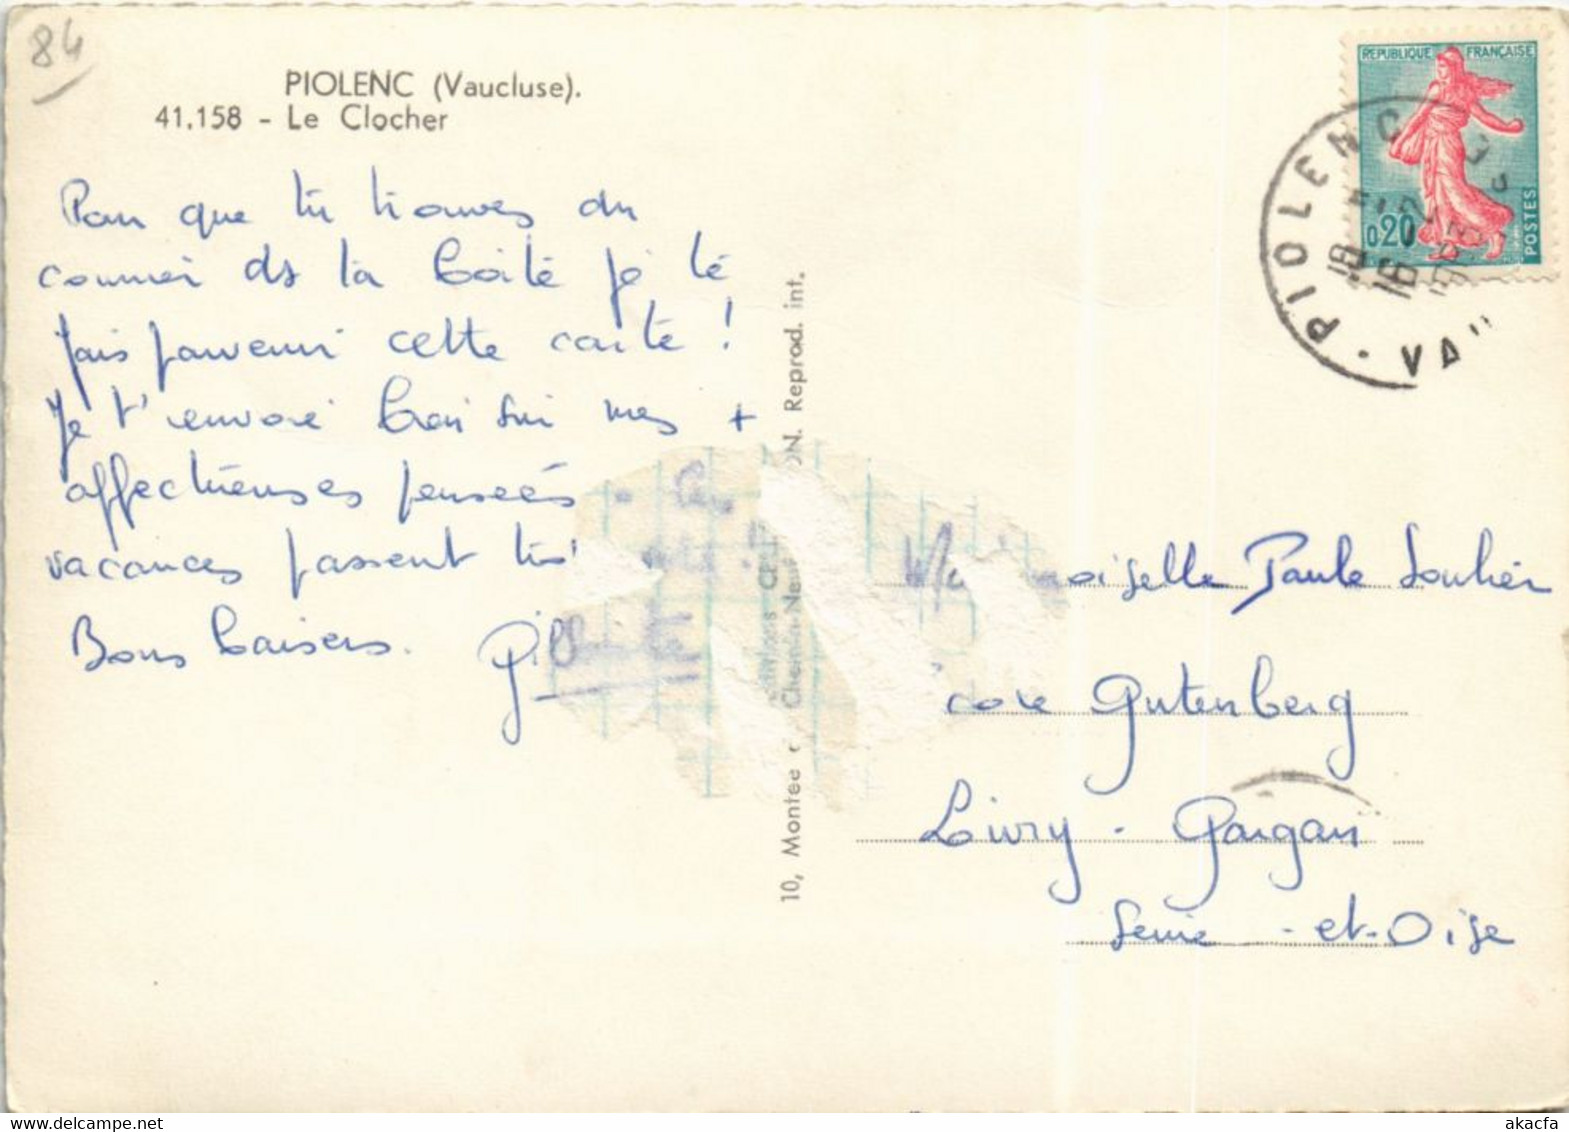 84
PIOLENC (Vaucluse).
41.158 - Le Clocher
Pour que tu trouves du
courrier ds ta boîte je te
fais parvenir cette carte !
Je t'envoie bien sûr mes +
affectueuses pensées
vacances passent très
Bons baisers.
Gilberte
10, Montée
ON. Reprod. int.
REPUBLIQUE FRANÇAISE
0,20
POSTES
PIOLENC
18 H
16
VAU
Mademoiselle Paule Soulier
Gutenberg
Livry - Gargan
Seine - et - Oise
www.delcampe.net
akacfa